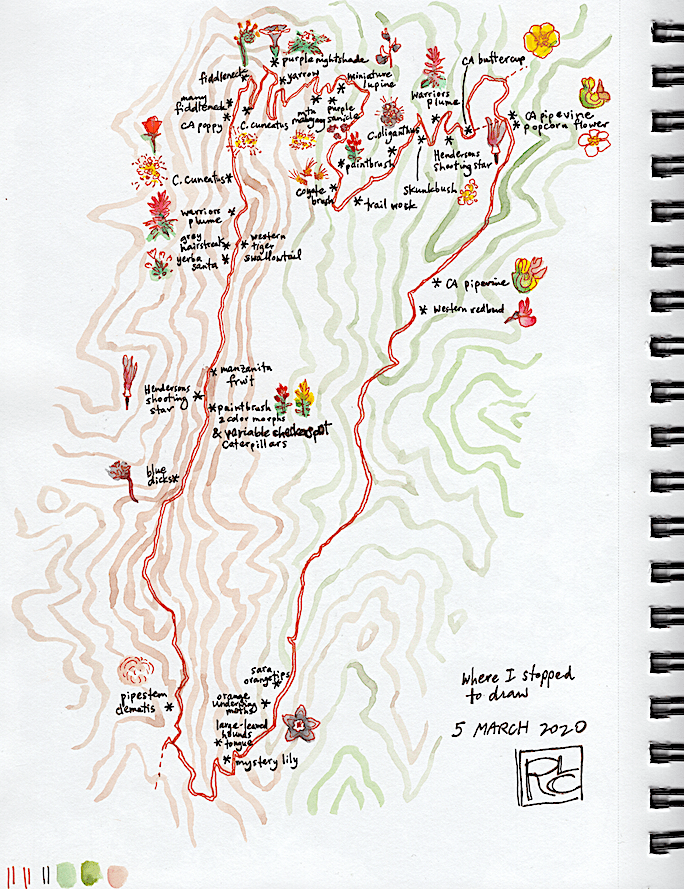 CA buttercup
purple nightshade
fiddleneck
yarrow
miniature
lupine
warriors
plume
many
fiddleneck
CA poppy
C. cuneatus
mtn
mahogany
purple
sanicle
C. oliganthus
CA pipevine
popcorn flower
Hendersons
shooting star
paintbrush
skunkbush
C. cuneatus
coyote
brush
trail work
warriors
plume
grey
hairstreak
western
tiger
swallowtail
yerba
santa
CA pipevine
western redbud
manzanita
fruit
Hendersons
shooting
star
paintbrush
2 color morphs
& variable checkerspot
caterpillars
blue
dicks
sara
orangetips
orange
underwing
moths
pipestem
clematis
large-leaved
hounds
tongue
mystery lily
where I stopped
to draw
5 MARCH 2020